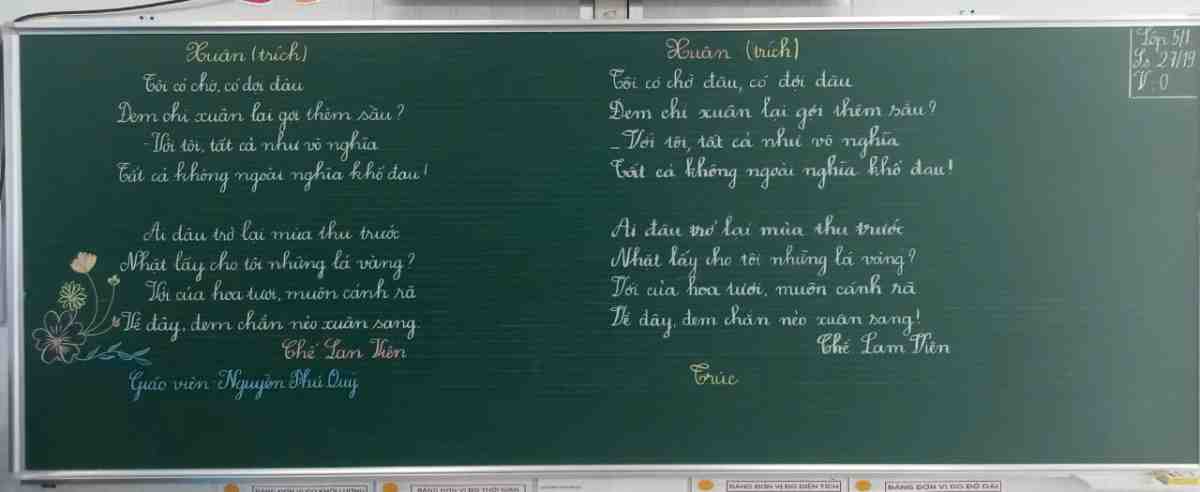 Xuân (trích)
Tôi có chờ, có đợi đâu
Đem chi xuân lại gợi thêm sầu?
- Với tôi, tất cả như vô nghĩa
Tất cả không ngoài nghĩa khổ đau!
Ai đâu trở lại mùa thu trước
Nhặt lấy cho tôi những lá vàng?
Với của hoa tươi, muôn cánh rã
Về đây, đem chắn nẻo xuân sang.
Chế Lan Viên
Giáo viên: Nguyễn Phú Quý
Xuân (trích)
Tôi có chờ đâu, có đợi đâu
Đem chi xuân lại gợi thêm sầu?
- Với tôi, tất cả như vô nghĩa
Tất cả không ngoài nghĩa khổ đau!
Ai đâu trở lại mùa thu trước
Nhặt lấy cho tôi những lá vàng?
Với của hoa tươi, muôn cánh rã
Về đây, đem chắn nẻo xuân sang!
Chế Lam Viên
Trúc
Lớp 5/1
Ss 27/19
V: 0
BẢNG ĐƠN VỊ ĐO KHỐI LƯỢNG
BẢNG ĐƠN VỊ ĐO THỜI GIAN
BẢNG ĐƠN VỊ ĐO DIỆN TÍCH
BẢNG ĐƠN VỊ ĐO ĐỘ DÀI